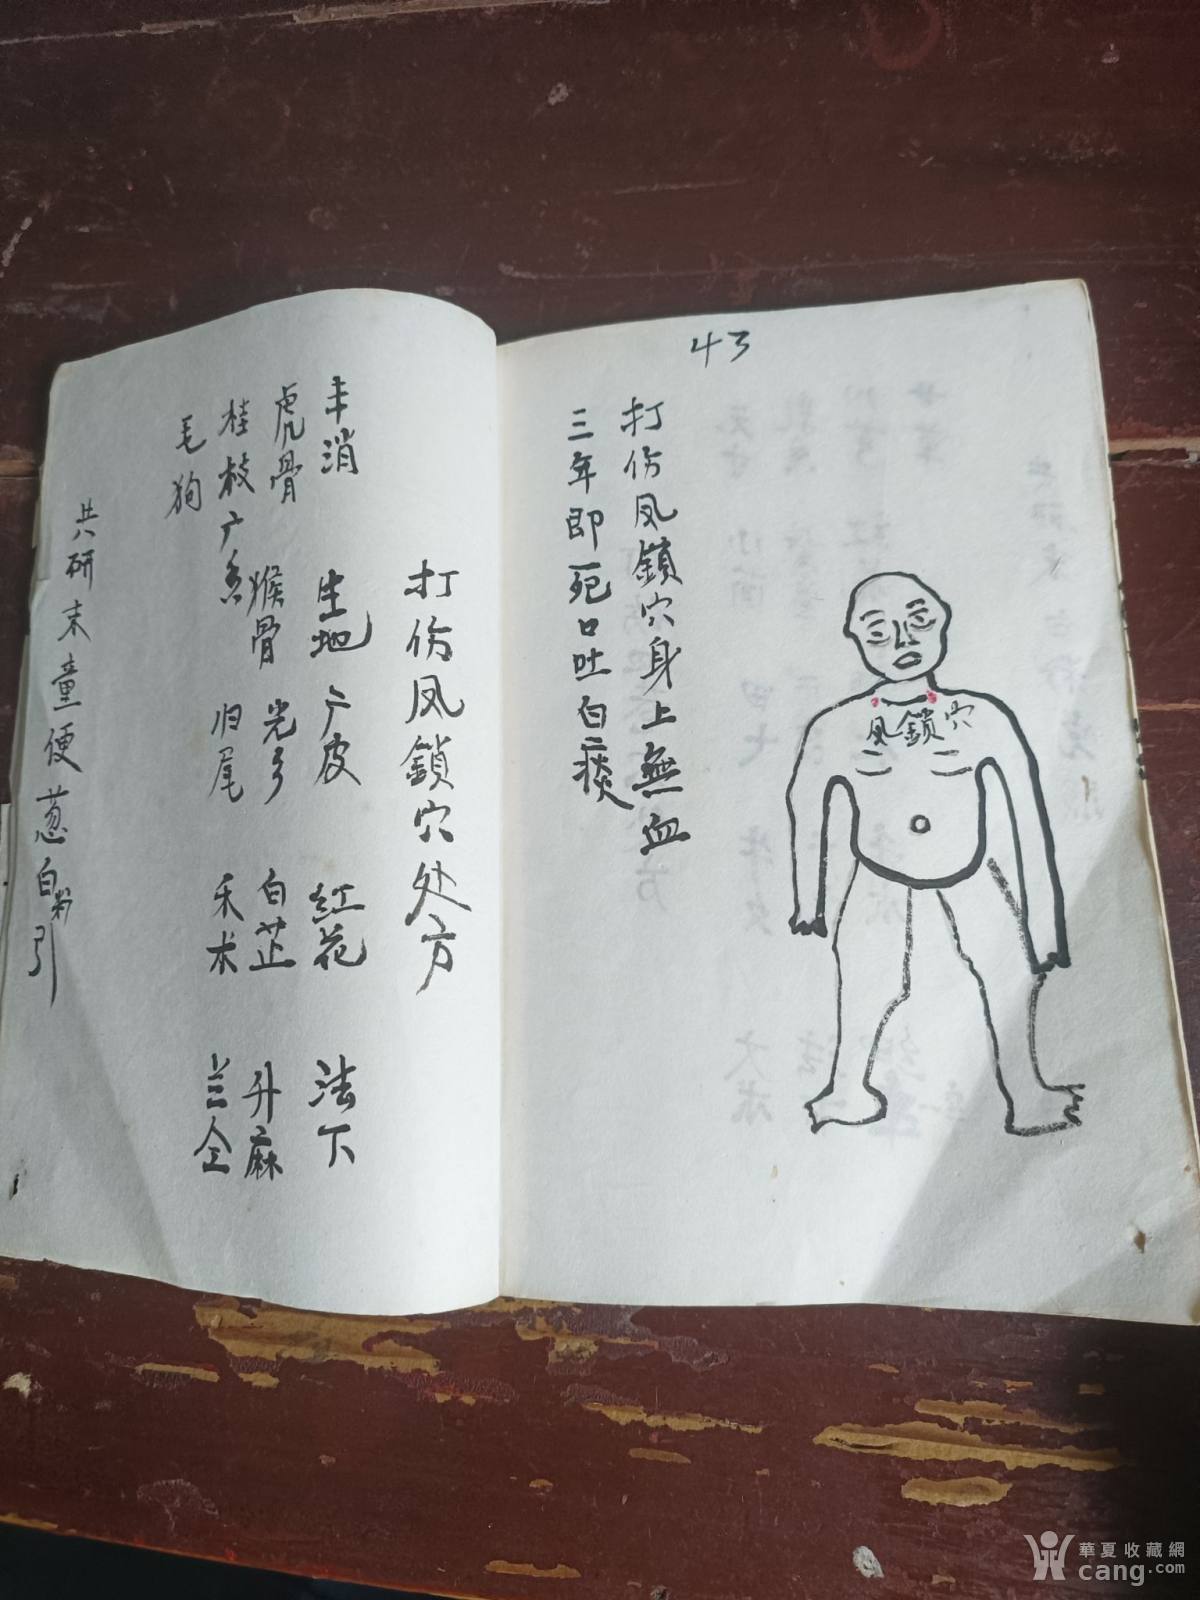 43
打伤凤鎖穴身上無血
三年即死口吐白痰
凤鎖穴
打伤凤鎖穴处方
丰消 生地 广皮 红花 法下
虎骨 猴骨 羌乡 白芷 升麻
桂枝 广香 归尾 禾术 兰仝
毛狗
共研末童便葱白为引
華夏收藏網
cang.com